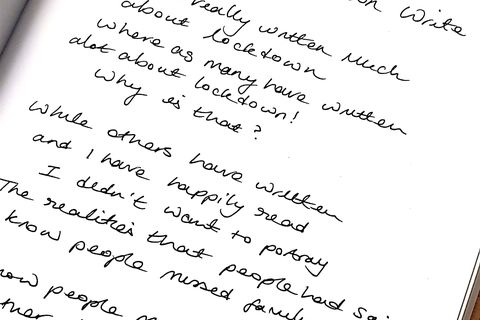 write
really written much
about lockdown
where as many have written
alot about lockdown!
why is that?
while others have written
and I have happily read
I didn't want to portray
The realities that people had
know people missed family
people